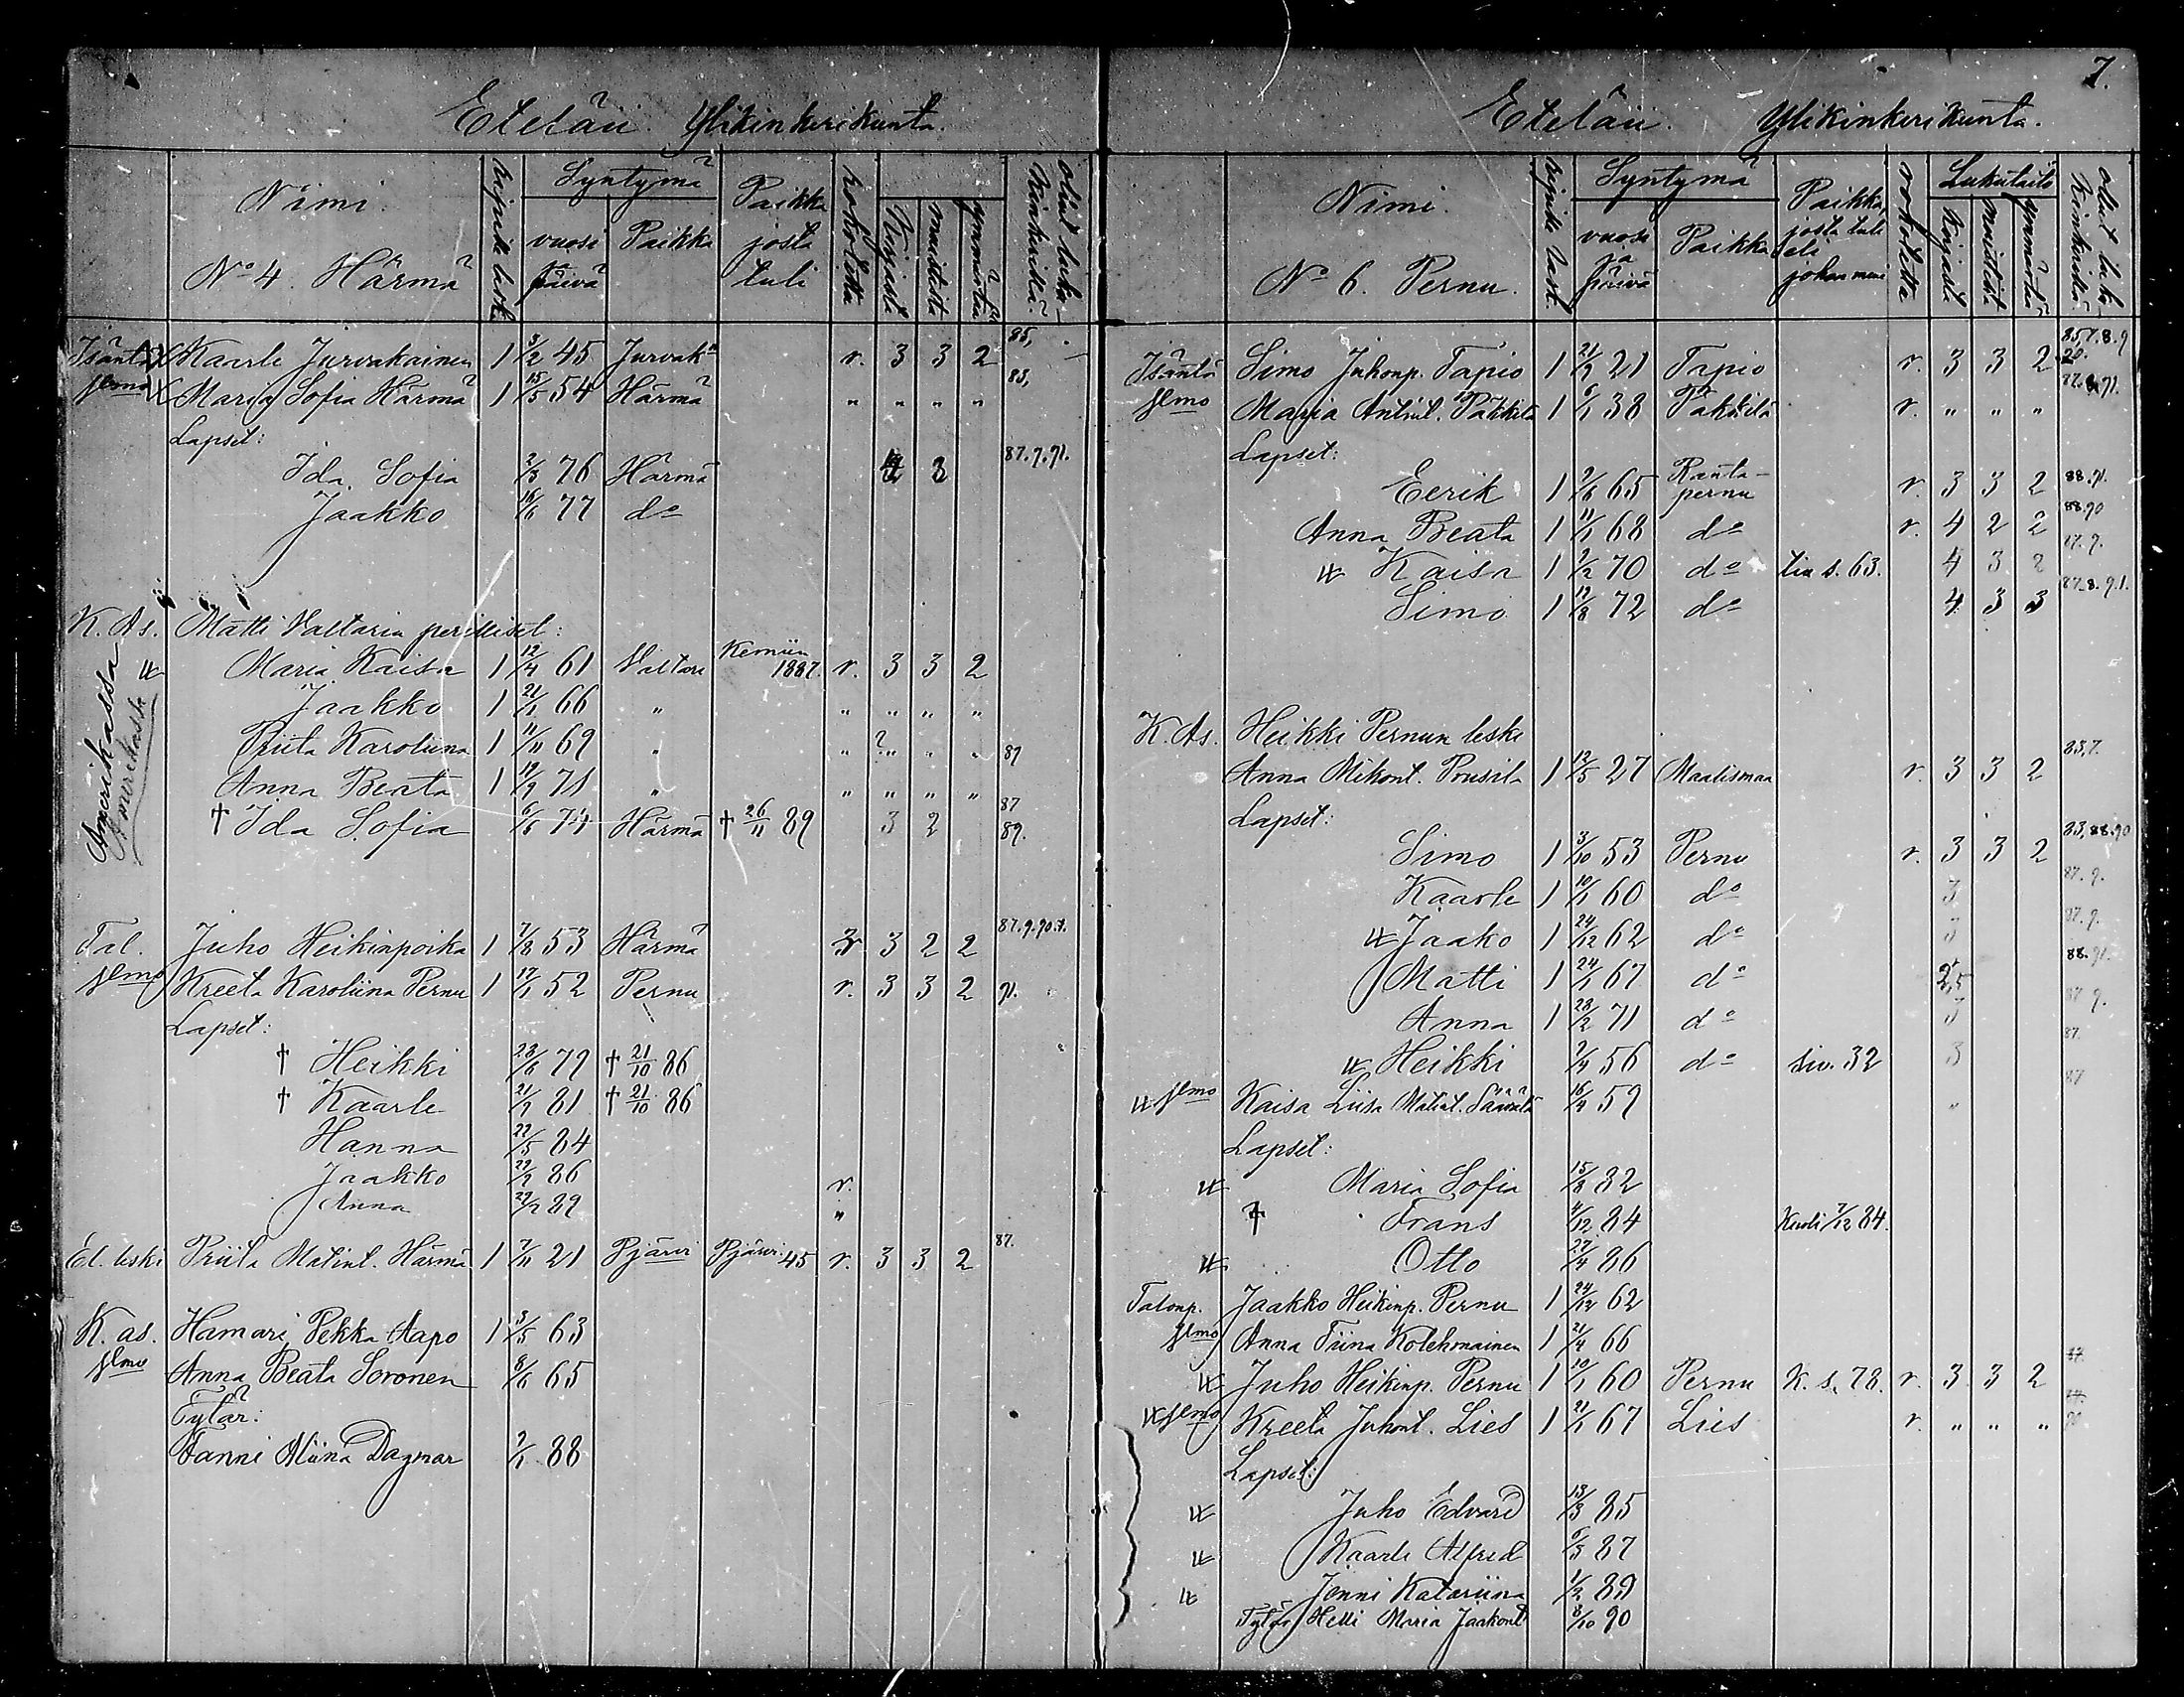 Eteläii. Ylikinkerikunta.
Nimi. Syntymä Paikka josta tuli
No 4. Härmä vuosi päivä Paikka rokotettu kirjasta muistista ymmärtää
Isäntä Kaarle Jurvakainen 1 3/2 45 Jurvak. r. 3 3 2 85,
Maria Sofia Härmä 1 15/5 54 Härmä " " " " 83,
Lapset:
Ida Sofia 2/3 76 Härmä 87.9.91.
Jaakko 16/6 77 do
K. As. Matti Valtarin perilliset:
Maria Kaisa 1 12/4 61 Valtari Kemiin 1887. r. 3 3 2
Jaakko 1 21/1 66 " " " " "
Priita Karoliina 1 11/11 69 " " " " " 89
Anna Beata 1 19/9 71 " " " " " 87
† Ida Sofia 6/6 74 Härmä † 26/11 89 3 2 89.
Amerikassa
Amerikasta
Tal. Juho Heikinpoika 1 7/8 53 Härmä r 3 2 2 87.9.90.1.
Kreeta Karoliina Pernu 1 17/1 52 Pernu r. 3 3 2 91.
Lapset:
† Heikki 23/6 79 † 21/10 86
† Kaarle 21/9 81 † 21/10 86
Hanna 22/5 84
Jaakko 29/2 86 r.
Anna 29/7 89 "
El. leski Priita Matint. Härmä 1 7/11 21 Pjärvi Pjärvi 45 r. 3 3 2 87.
K. as. Hamari Pekka Aapo 1 3/5 63
Anna Beata Soronen 8/6 65
Tytär:
Fanni Aliina Dagmar 9/1 88
7.
Eteläii. Ylikinkerikunta.
Nimi. Syntymä Paikka, josta tuli eli johon meni Lukutaito
No 6. Pernu. vuosi ja päivä Paikka rokotettu kirjasta muistista ymmärtää
Isäntä Simo Juhonp. Tapio 1 21/9 21 Tapio r. 3 3 2 85,7.8.9
Maria Antint. Päkkilä 1 6/1 38 Päkkilä r. " " "
Lapset:
Eerik 1 9/6 65 Ranta-pernu r. 3 3 2 88.91.
Anna Beata 1 11/1 68 do r. 4 2 2 88.90
Kaisa 1 9/2 70 do s. 63. 4 3 2 87.9.
Simo 1 19/8 72 do 4 3 3 87.8.9.1.
K. As. Heikki Pernun leski
Anna Mikont. Pousila 1 12/5 27 Maalismaa r. 3 3 2 83,7.
Lapset:
Simo 1 3/10 53 Pernu r. 3 3 2 83,88.90
Kaarle 1 10/1 60 do 3 87.9.
Jaako 1 24/12 62 do 87.9.
Matti 1 24/1 67 do 2,5 88.91.
Anna 1 28/2 71 do 87 9.
Heikki 9/4 56 do siv. 32 3 87.
Kaisa Liisa Matint. 16/4 59 " 87
Lapset:
Maria Sofia 15/8 82
† Frans 4/12 84 Kuoli 7/12 84.
Otto 27/4 86
Talonp. Jaakko Heikinp. Pernu 1 24/12 62
Anna Tiina Kolehmainen 1 21/4 66
Juho Heikinp. Pernu 1 10/1 60 Pernu K. s. 78. r. 3 3 2 87.
Kreeta Juhont. Lies 1 21/1 67 Lies r. " " "
Lapset:
Juho Edvard 13/3 85
Kaarle Alfred 5/3 87
Jenni Katariina 1/2 89
Tytär Helli Maria Jaakont. 8/10 90